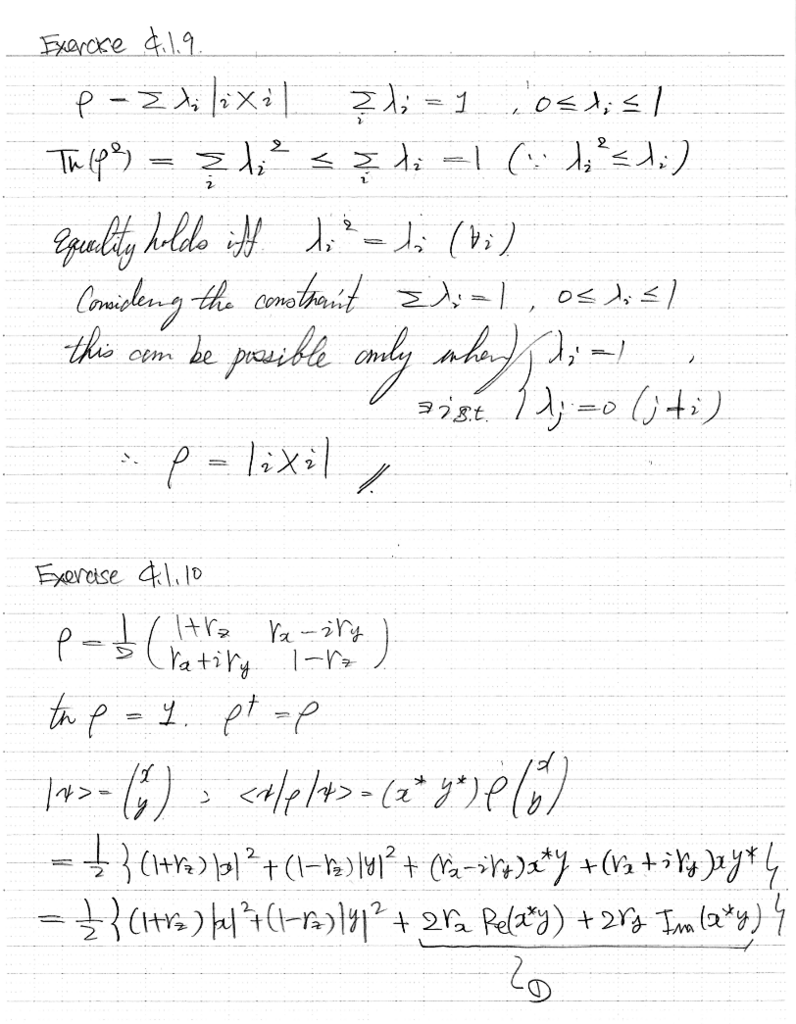 Exercise 4.1.9.
ρ = Σ λi |i⟩⟨i|   Σi λi = 1 , 0 ≤ λi ≤ 1
Tr(ρ²) = Σi λi² ≤ Σi λi = 1 (∵ λi² ≤ λi)
Equality holds iff λi² = λi (∀i)
Considering the constraint Σ λi = 1 , 0 ≤ λi ≤ 1
this can be possible only when { λi = 1 ,
∃i s.t. { λj = 0 (j ≠ i)
∴ ρ = |i⟩⟨i| //
Exercise 4.1.10
ρ = 1/2 ( 1+rz   rx − iry
rx + iry   1 − rz )
tr ρ = 1. ρ† = ρ
|ψ⟩ = (x y) ; ⟨ψ|ρ|ψ⟩ = (x* y*) ρ (x y)
= 1/2 { (1+rz)|x|² + (1−rz)|y|² + (rx − iry)x*y + (rx + iry)xy* }
= 1/2 { (1+rz)|x|² + (1−rz)|y|² + 2rx Re(x*y) + 2ry Im(x*y) }
①